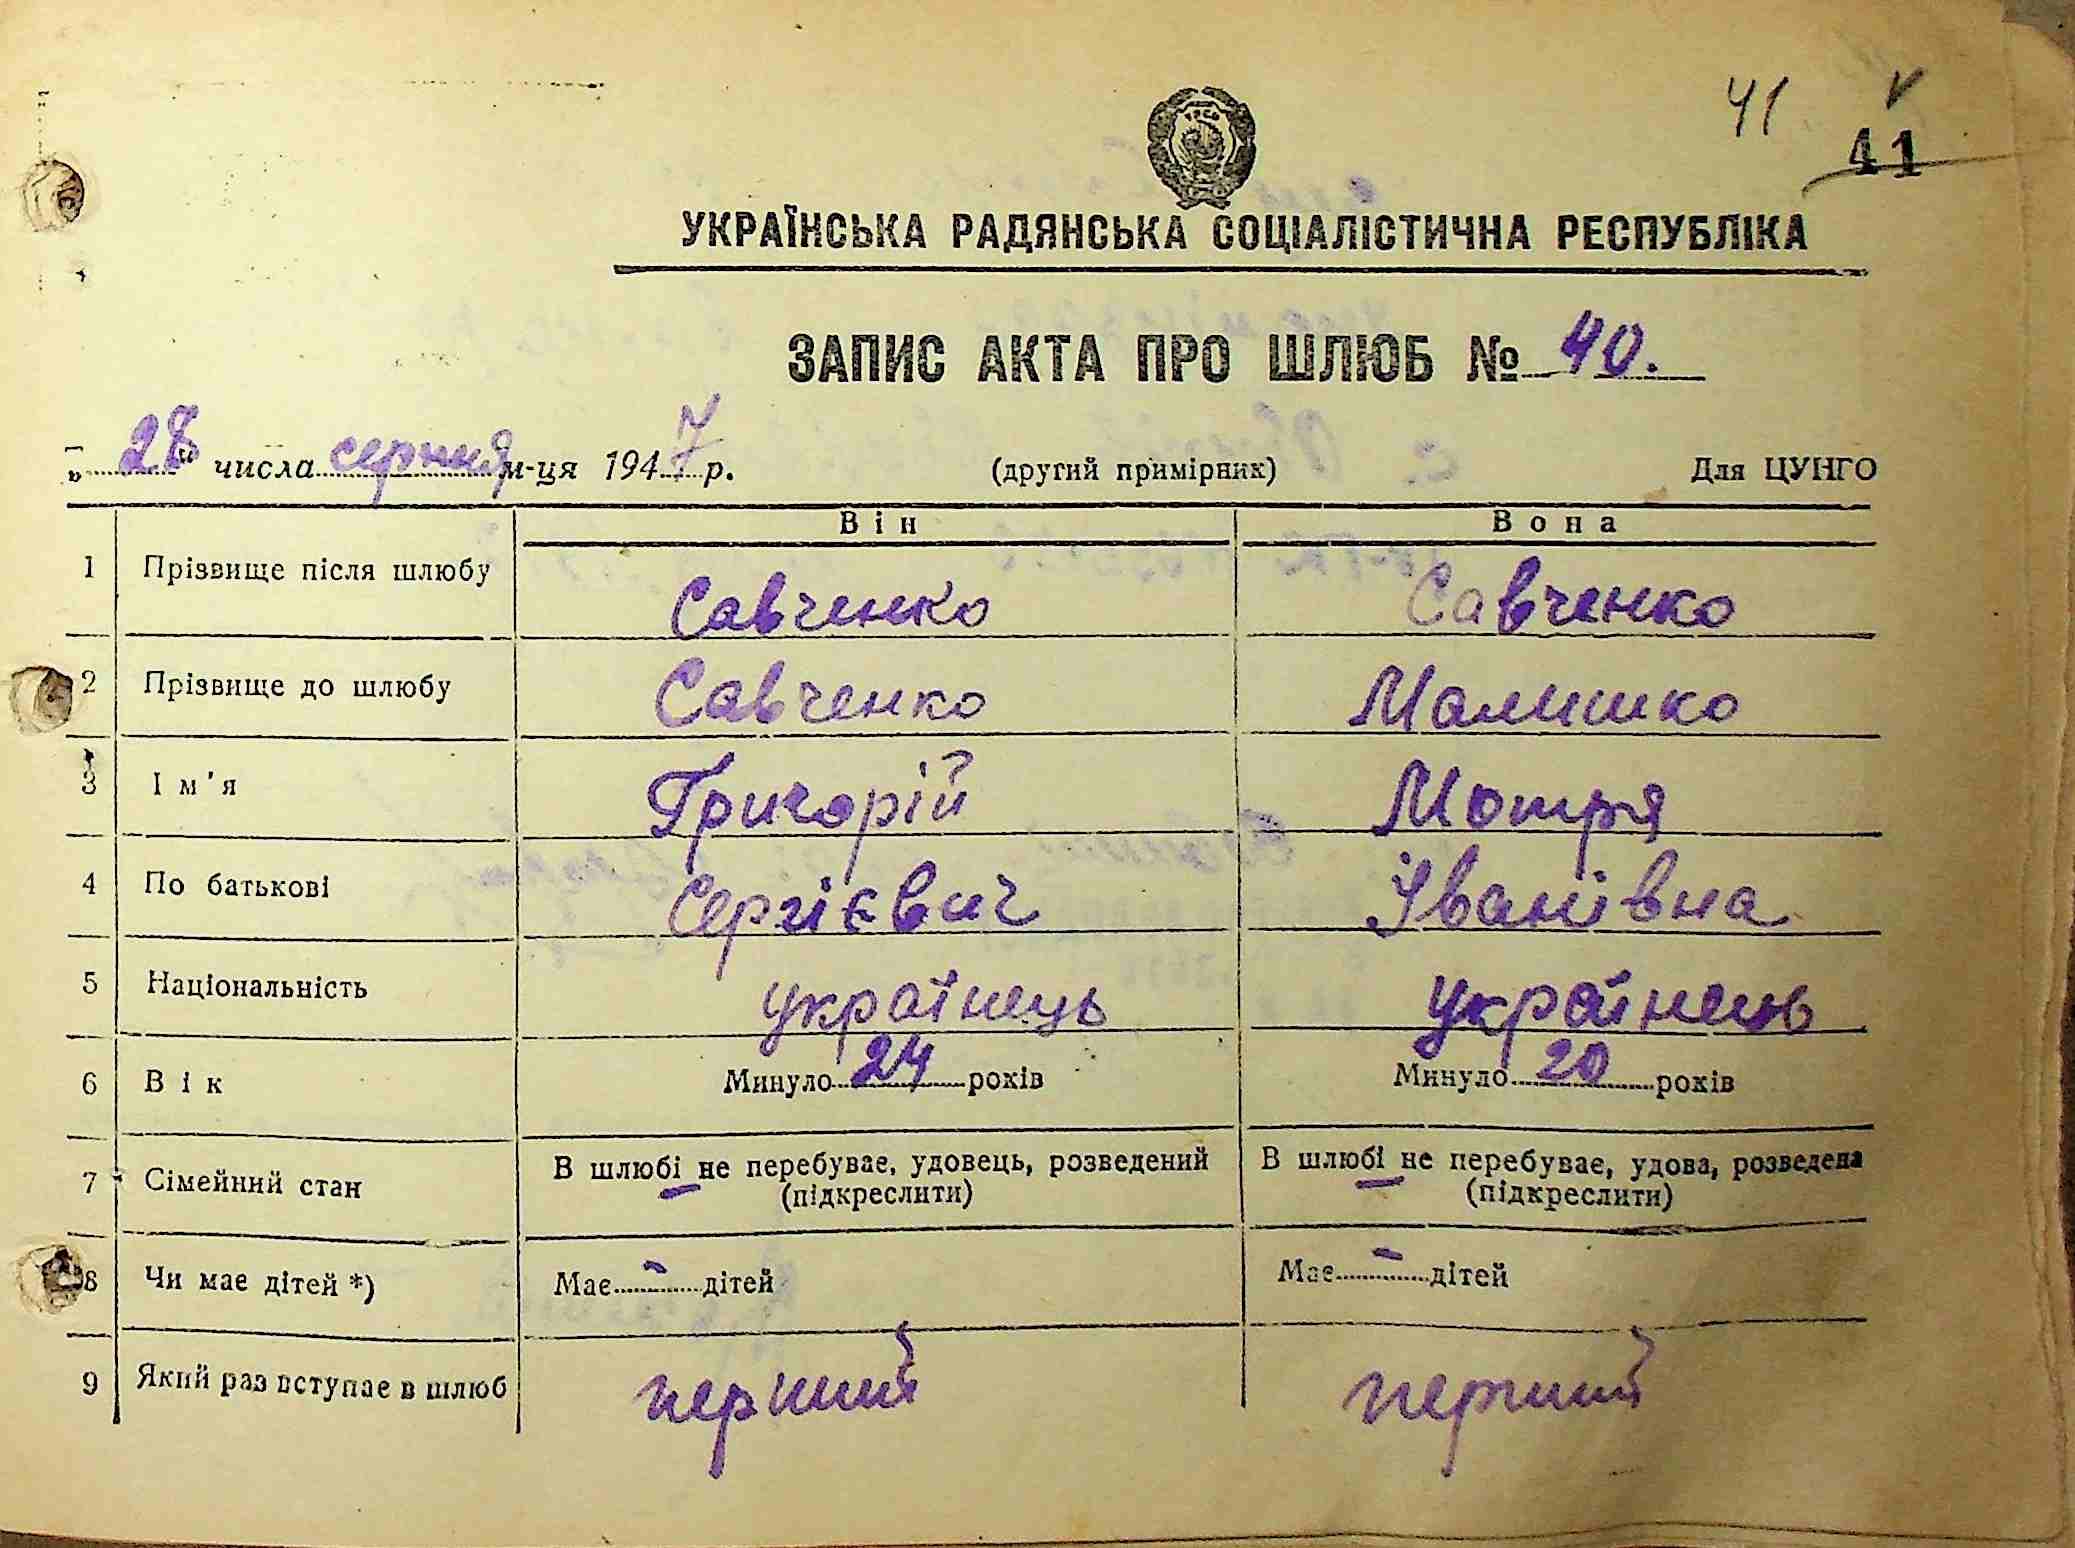 41
41
УКРАЇНСЬКА РАДЯНСЬКА СОЦІАЛІСТИЧНА РЕСПУБЛІКА
ЗАПИС АКТА ПРО ШЛЮБ № 40.
„28“ числа серпня м-ця 1947 р. (другий примірник) Для ЦУНГО
Він Вона
1 Прізвище після шлюбу Савченко Савченко
2 Прізвище до шлюбу Савченко Малишко
3 Ім'я Григорій Мотря
4 По батькові Сергієвич Іванівна
5 Національність українець українець
6 Вік Минуло 24 років Минуло 20 років
7 Сімейний стан В шлюбі не перебуває, удовець, розведений В шлюбі не перебуває, удова, розведена
(підкреслити) (підкреслити)
8 Чи має дітей *) Має - дітей Має - дітей
9 Який раз вступає в шлюб перший перший